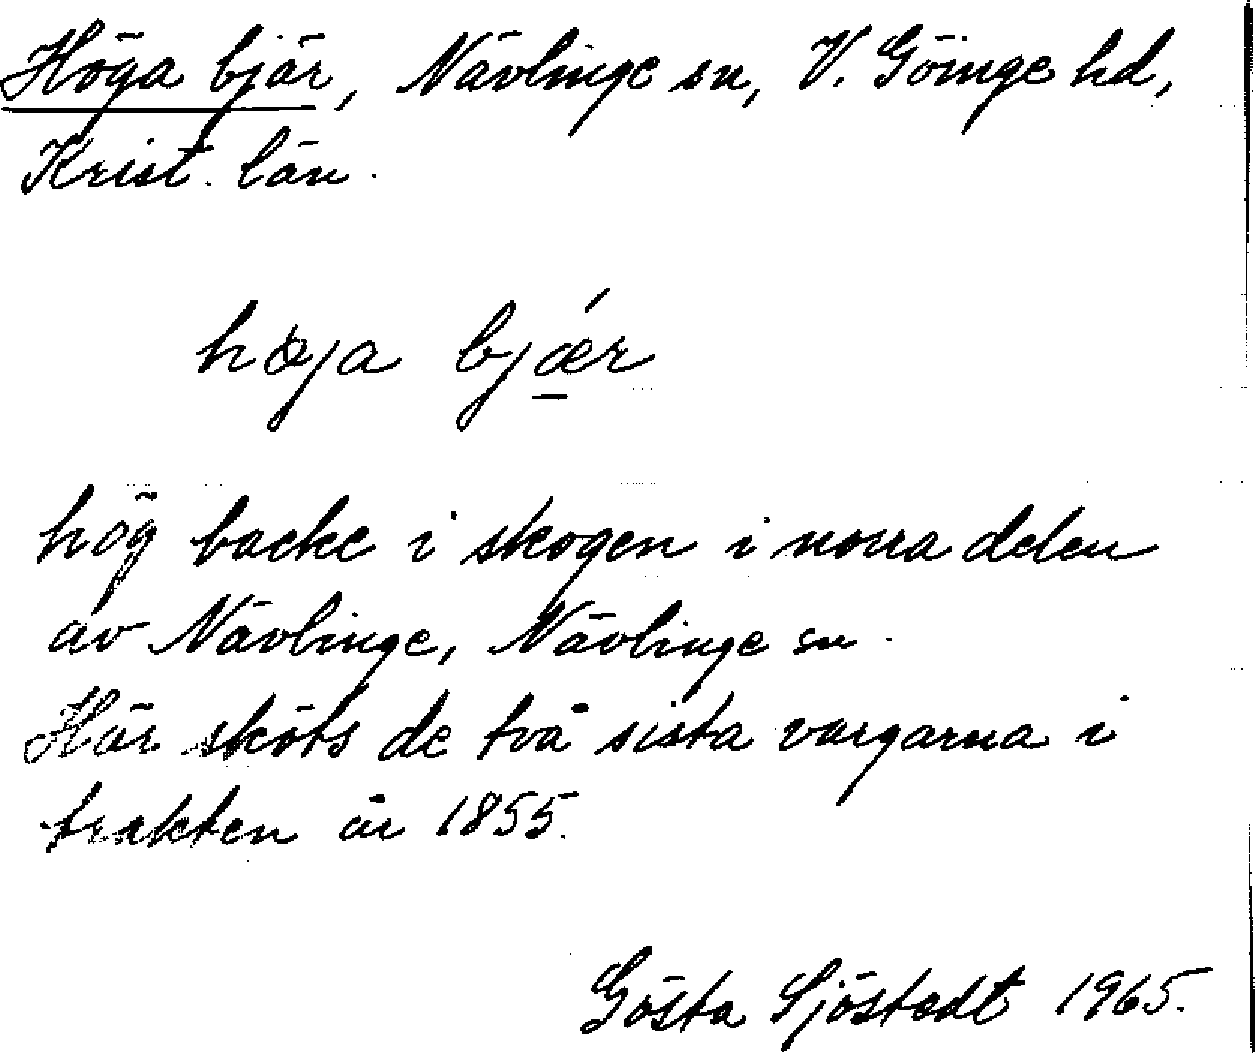 Höga bjär, Nävlinge sn, V. Göinge hd,
Krist. län.
høja bjǽr
hög backe i skogen i norra delen
av Nävlinge, Nävlinge sn.
Här sköts de två sista vargarna i
trakten år 1855.
Gösta Sjöstedt 1965.